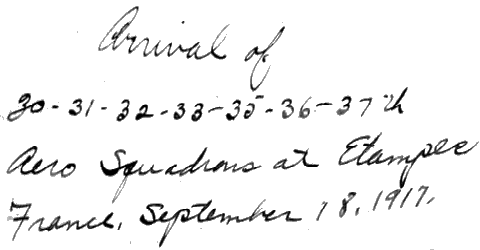 Arrival of
30-31-32-33-35-36-37th
Aero Squadrons at Etampes
France, September 18, 1917.